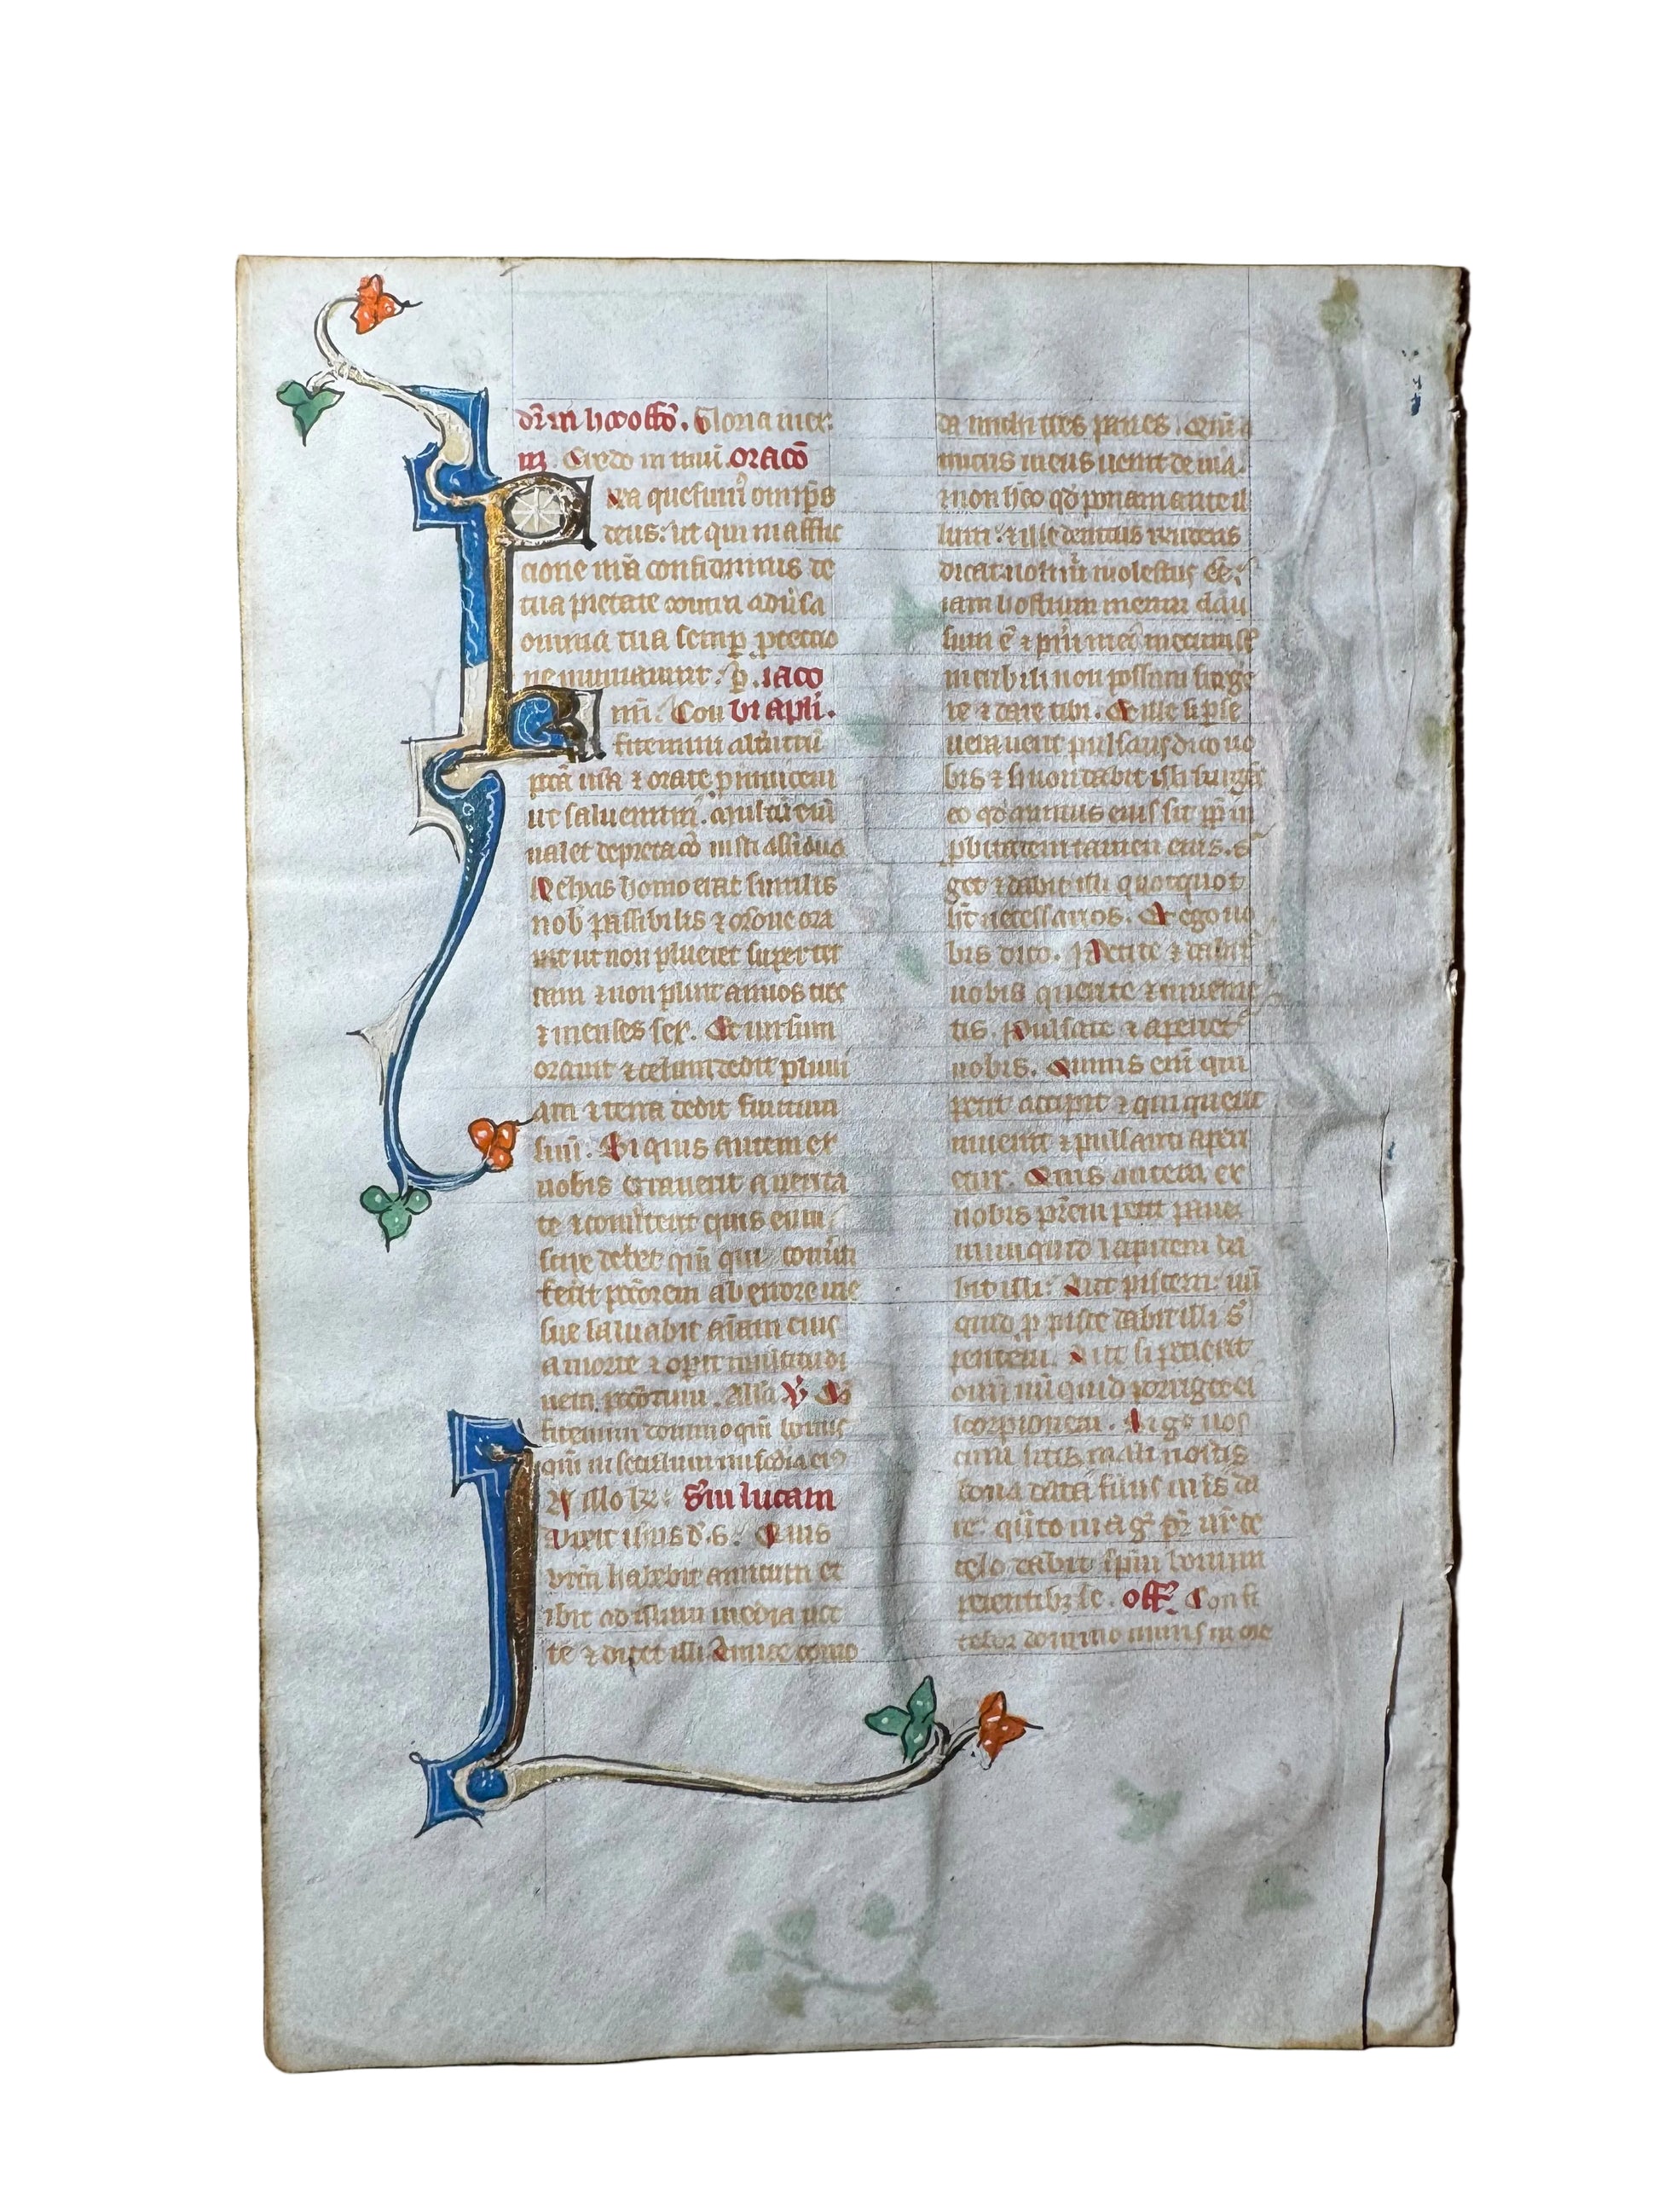 dr̄ in h͛ offō. Gloria in ex
Credo in unū. oracō
ta quesum᷒ omīps
deus: ut qui in afflic
cione nr̄a confidimus de
tua pietate contra aduˀsa
omnia tua semp̱ ꝓtectio
ne muniamur: ꝑ. iaco
mī. Con bi apl̄i.
fitemini altˀutrū
pctā ur̄a ⁊ orate ꝓ inuicem
ut saluemini. Multū eni
ualet deprecacō iusti assidua
helyas homo erat similis
nob̄ passibilis ⁊ orōne ora
uit ut non plueret super ter
ram ⁊ non pluit annos tres
⁊ menses sex. Et rursum
orauit ⁊ celum dedit pluui
am ⁊ terra dedit fructum
suū. Si quis autem ex
uobis errauerit a uerita
te ⁊ conuˀterit quis eum
scire debet qm̄ qui conuˀti
fecˀit pctōrem ab errore uie
sue saluabit aīam eius
a morte ⁊ operit multitudi
nem pctōrum. All̄a ꝟ Cō
fitemini domino qm̄ bonus
qm̄ in seculum mīscdia eiˀ
N illo t̄ꝛ: S̄m lucam
dixit ih̄us d. s. Quis
ur̄m habebit amicum et
ibit ad illum media noc
te ⁊ dicet illi Amice como
da michi tres panes. Qm̄ a
micus meus uenit de uia
⁊ non h̄eo qd̓ ponam ante il
lum: ⁊ ille deintus respondens
dicat: noli m̄ molestus ēē.
iam hostium meum clau
sum ē ⁊ puˀi mei mecum s̄t
in cubili non possum surge
re ⁊ dare tibi. Et ille si ꝑse
uerauerit pulsans dico uo
bis ⁊ si non dabit illi surgēs
eo qd̓ amicus eius sit ꝓp̄ in
ꝓbitatem tamen eius. s
get ⁊ dabit illi quotquot
h̄t necessarios. Et ego uo
bis dico. Petite ⁊ dabit᷒
uobis querite ⁊ inuenie
tis. Pulsate ⁊ aperiet᷒
uobis. Omnis enī qui
petit accipit ⁊ qui querit
inuenit ⁊ pulsanti aperi
etur. Quis autem ex
uobis pr̄em petit panē
nunquid lapidem da
bit illi: Aut piscem: nū
quid ꝓ pisce dabit illi sˀ
pentem. Aut si petierit
ouū nūquid porriget ei
scorpionem. Si ergo uos
cum sitis mali nostis
bona data filiis uris da
re: qūto mag̓ pr̄ ur̄ de
celo dabit sp̄m bonum
petentibꝫ se. off᷒. Confi
tebor domino nimis in ore